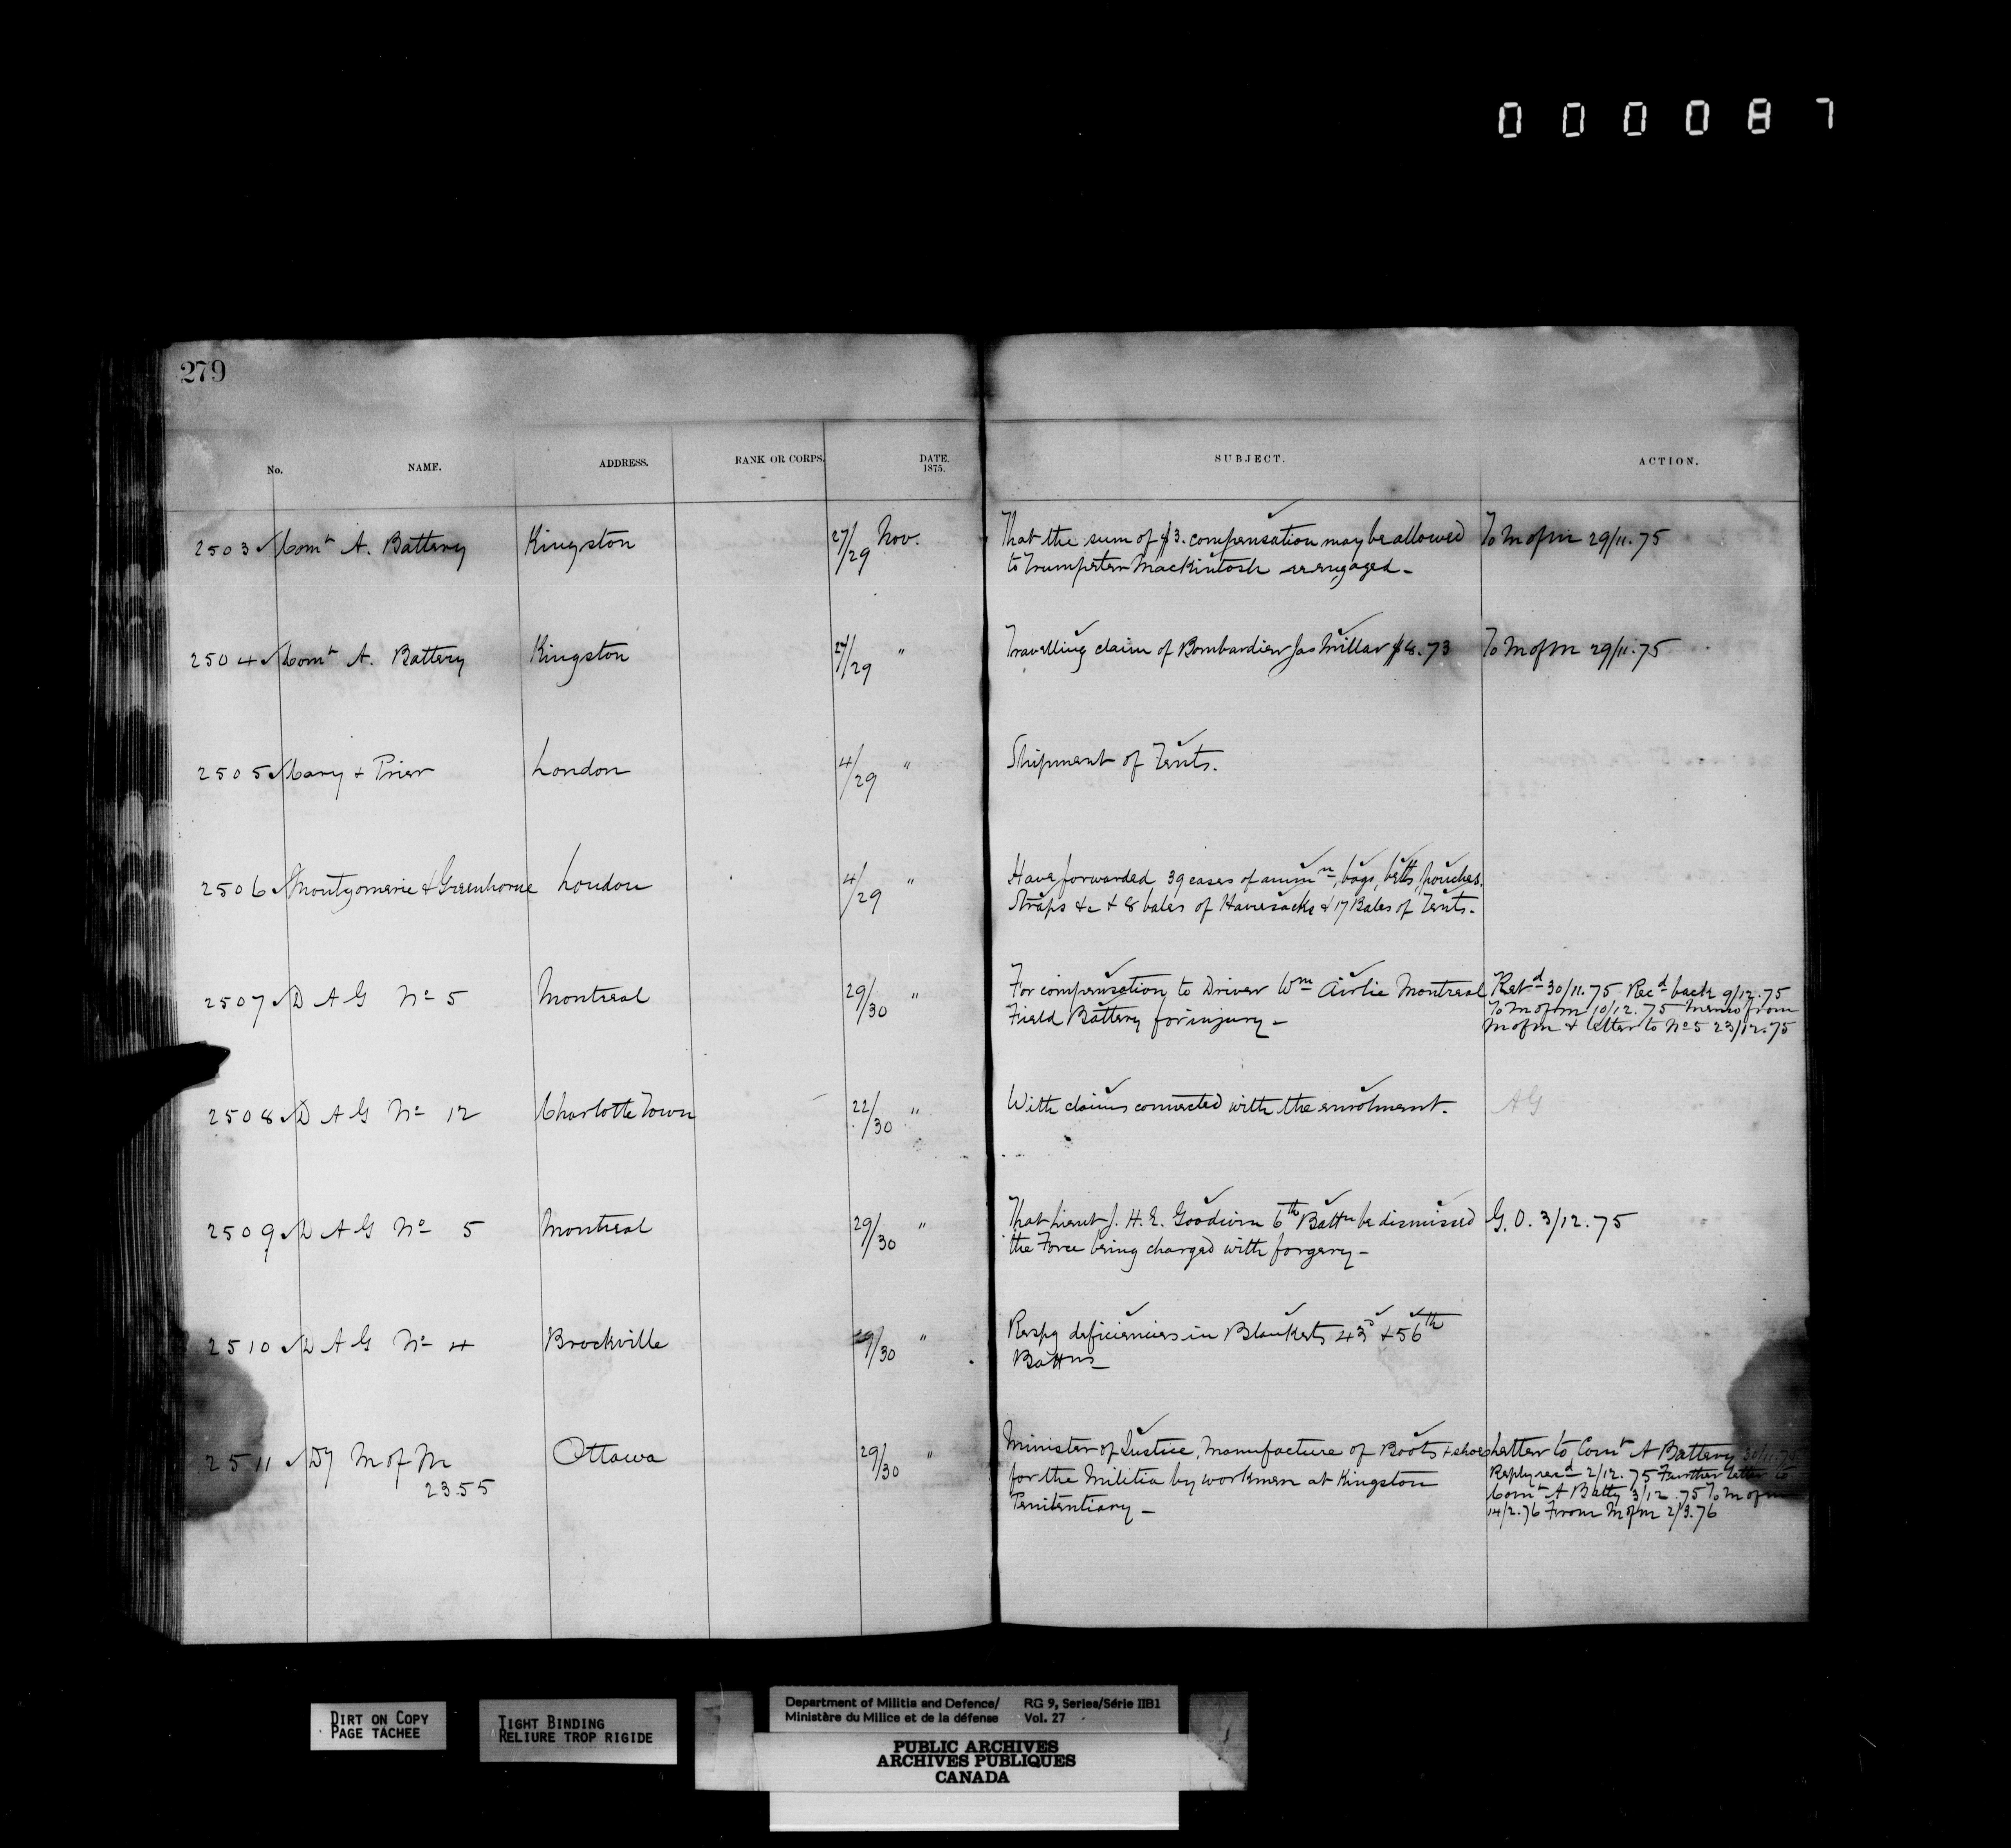 000087
279
No. NAME. ADDRESS. RANK OR CORPS. DATE. 1875. SUBJECT. ACTION.
2503 Comt A. Battery Kingston 27/29 Nov. That the sum of $3. compensation may be allowed To M of M 29/11.75
to Trumpeter Mackintosh re engaged -
2504 Comt A. Battery Kingston 27/29 " Travelling claim of Bombardier Jas Millar $8.73 To M of M 29/11.75
2505 Cary + Prier London 4/29 " Shipment of Tents.
2506 Montgomerie & Greenhorne London 4/29 " Have forwarded 39 cases of ammn, bags, belts, pouches,
Straps &c + 8 bales of Haversacks & 17 Bales of Tents -
2507 D A G No 5 Montreal 29/30 " For compensation to Driver Wm Airlie Montreal Retd 30/11.75 Recd back 9/12.75
Field Battery for injury - To M of M 10/12.75 Memo from
M of M & letter to No 5 23/12.75
2508 D A G No 12 Charlotte Town 22/30 " With claims connected with the enrolment. AG
2509 D A G No 5 Montreal 29/30 " That Lieut J. H. E. Goodwin 6th Battn be dismissed G. O. 3/12.75
the Force being charged with forgery -
2510 D A G No 4 Brockville 29/30 " Respg deficiencies in Blankets 43d + 56th
Battns
2511 Dy M of M Ottawa 29/30 " Minister of Justice, Manufacture of Boots + shoes Letter to Comt A Battery 30/11.75
23.55 for the Militia by workmen at Kingston Reply recd 2/12.75 Further letter to
Penitentiary - Comt A Batty 3/12.75 To M of M
14/2.76 From M of M 2/3.76
DIRT ON COPY
PAGE TACHEE
TIGHT BINDING
RELIURE TROP RIGIDE
Department of Militia and Defence/ RG 9, Series/Série IIB1
Ministère du Milice et de la défense Vol. 27
PUBLIC ARCHIVES
ARCHIVES PUBLIQUES
CANADA